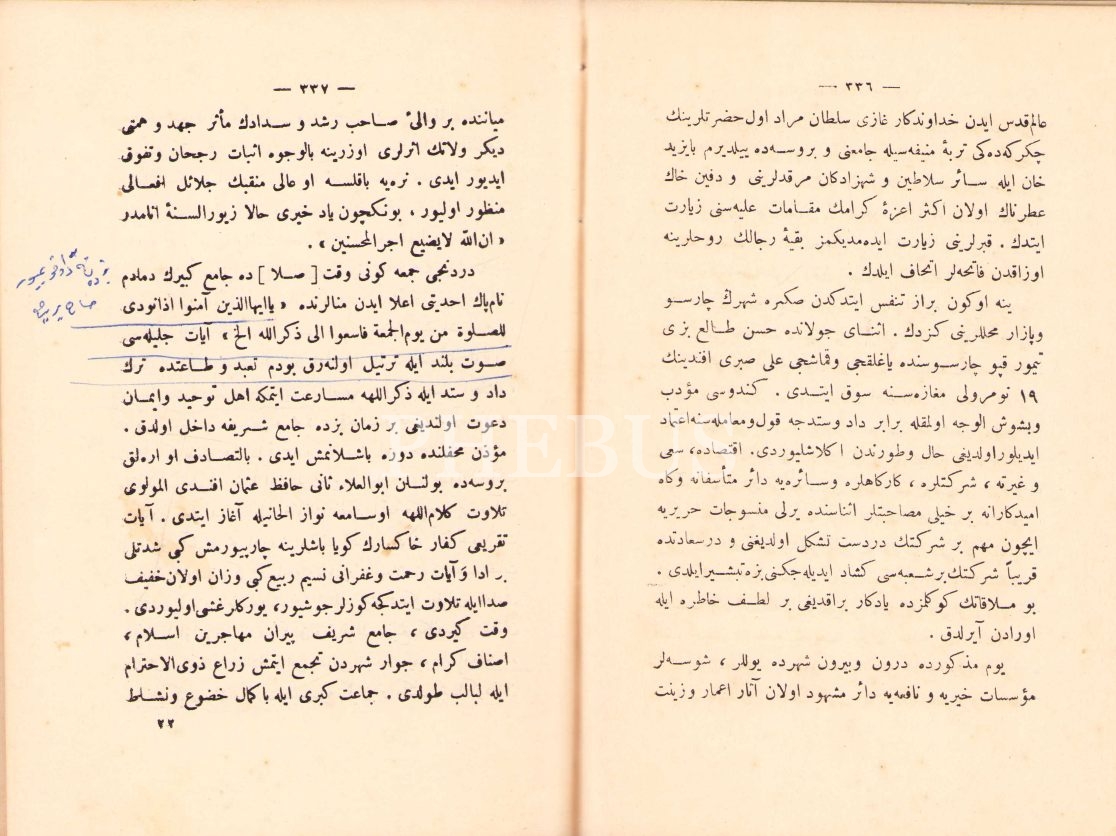 — ٣٣٦ —
عالم‌قدس ایدن خداوندکار غازی سلطان مراد اول حضرتلرینك
چکرکه‌ده‌کی تربهٔ منیفه‌سیله جامعنی و بروسه‌ده ییلدیرم بایزید
خان ایله سائر سلاطین و شهزادکان مرقدلرینی و دفین خاك
عطرناك اولان اکثر اعزهٔ کرامك مقامات علیه‌سنی زیارت
ایتدك . قبرلرینی زیارت ایده‌مدیکمز بقیهٔ رجالك روحلرینه
اوزاقدن فاتحه‌لر اتحاف ایلدك .
ینه اوکون براز تنفس ایتدکدن صکره شهرك چارسو
وبازار محللرینی کزدك . اثنای جولانده حسن طالع بزی
تیمور قپو چارسوسنده یاغلقجی وقماشجی علی صبری افندینك
١٩ نومرولی مغازه‌سنه سوق ایتدی . کندوسی مؤدب
وبشوش الوجه اولمقله برابر داد وستدجه قول‌ومعامله‌سنه‌اعتماد
ایدیلور‌اولدیغی حال وطورندن اکلاشلیوردی. اقتصاده، سعی
و غیرته ، شرکتلره ، کارکاهلره وسائره‌یه دائر متأسفانه وکاه
امیدکارانه بر خیلی مصاحبتلر اثناسنده یرلی منسوجات حریریه
ایچون مهم بر شرکتك دردست تشکل اولدیغنی و درسعادتده
قریباً شرکتك‌بر‌شعبه‌سی کشاد ایدیله‌جکنی‌بزه‌تبشیر‌ایلدی .
بو ملاقاتك کوکلمزده یادکار براقدیغی بر لطف خاطره ایله
اورادن آیرلدق .
یوم مذکورده درون وبیرون شهرده یوللر ، شوسه‌لر
مؤسسات خیریه و نافعه‌یه دائر مشهود اولان آثار اعمار وزینت
— ٣٣٧ —
میاننده بر والیٔ صاحب رشد و سدادك مآثر جهد و همتی
دیکر ولاتك اثرلری اوزرینه بالوجوه اثبات رجحان وتفوق
ایدیور ایدی . نره‌یه باقلسه او عالی منقبك جلائل افعالی
منظور اولیور . بونکچون یاد خیری حالا زیور‌السنهٔ انامدر
« ان‌الله لایضیع اجر‌المحسنین » .
دردنجی جمعه کونی وقت [ صلا ] ده جامع کبیرك دمادم
نام‌پاك احدیتی اعلا ایدن منالرنده « یاایهاالذین آمنوا اذانودی
للصلوة من یوم‌الجمعة فاسعوا الی ذکر‌الله الخ » آیات جلیله‌سی
صوت بلند ایله ترتیل اولنه‌رق بودم تعبد و طاعتده ترك
داد و ستد ایله ذکر‌اللهه مسارعت ایتمکه اهل توحید وایمان
دعوت اولندیغی بر زمان بزده جامع شریفه داخل اولدق .
مؤذن محفلنده دوره باشلانمش ایدی . بالتصادف او ارەلق
بروسه‌ده بولنان ابوالعلاء ثانی حافظ عثمان افندی المولوی
تلاوت کلام‌اللهه اوسامعه نواز الحانیله آغاز ایتدی . آیات
تقریعی کفار خاکسارك کویا باشلرینه چارپیورمش کبی شدتلی
بر ادا و‌آیات رحمت وغفرانی نسیم ربیع‌کبی وزان اولان‌خفیف
صدا‌ایله تلاوت ایتدکجه‌کوزلر‌جوشیور، یورکلر‌غشی‌اولیوردی .
وقت کیردی ، جامع شریف پیران مهاجرین اسلام ،
اصناف کرام ، جوار شهردن تجمع ایتمش زراع ذوی‌الاحترام
ایله لبالب طولدی . جماعت کبری ایله باکمال خضوع ونشاط
٢٢
PHEBUS